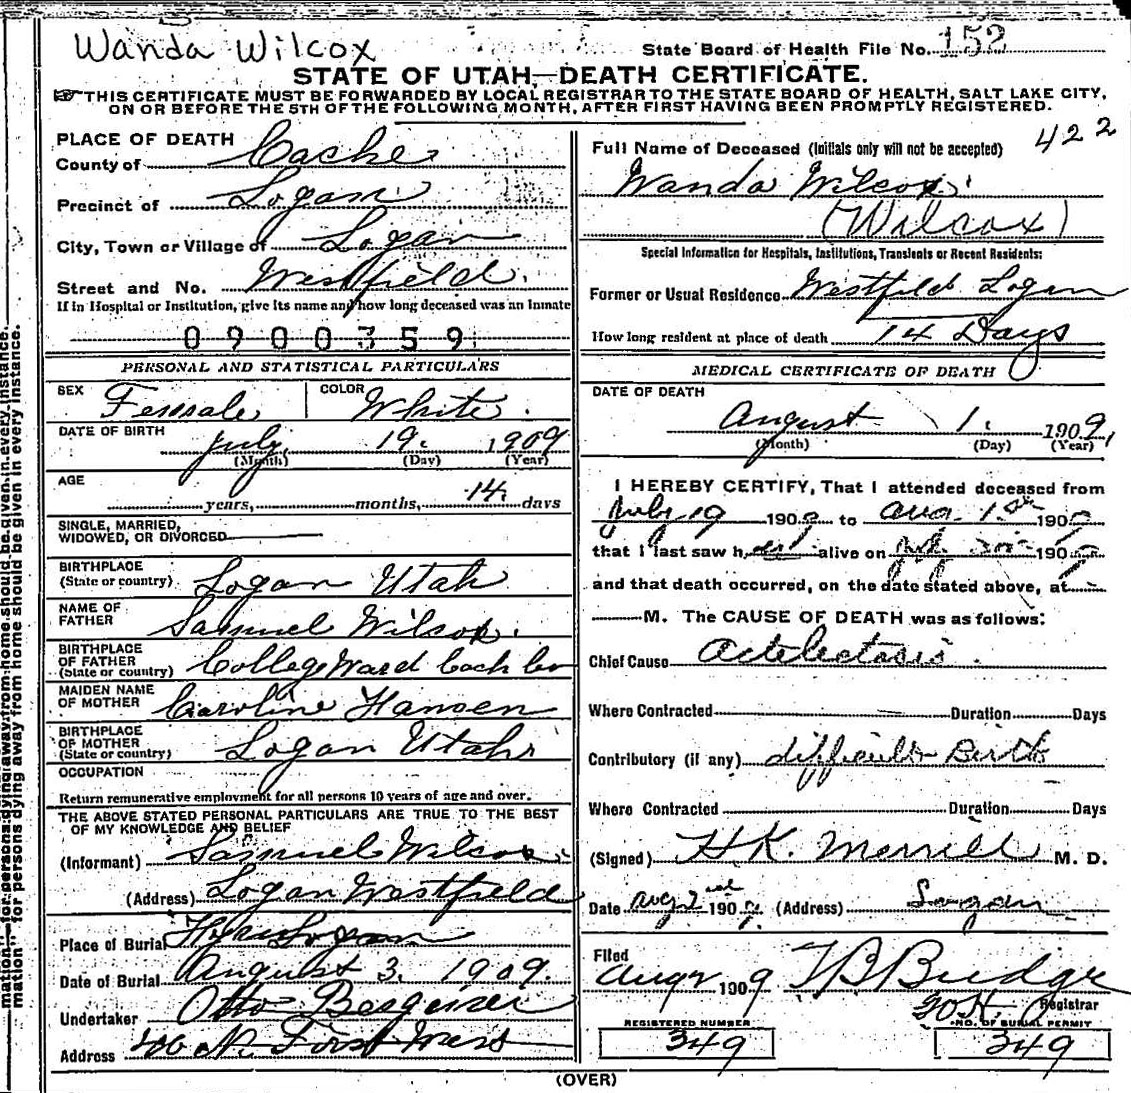 Wanda Wilcox
State Board of Health File No. 152
STATE OF UTAH—DEATH CERTIFICATE.
THIS CERTIFICATE MUST BE FORWARDED BY LOCAL REGISTRAR TO THE STATE BOARD OF HEALTH, SALT LAKE CITY,
ON OR BEFORE THE 5TH OF THE FOLLOWING MONTH, AFTER FIRST HAVING BEEN PROMPTLY REGISTERED.
PLACE OF DEATH
County of Cache
Precinct of Logan
City, Town or Village of Logan
Street and No. Westfield.
If in Hospital or Institution, give its name and how long deceased was an inmate
0900359
PERSONAL AND STATISTICAL PARTICULARS
SEX Female COLOR White.
DATE OF BIRTH July 19. 1909
(Month) (Day) (Year)
AGE
years, months, 14 days
SINGLE, MARRIED,
WIDOWED, OR DIVORCED
BIRTHPLACE
(State or country) Logan Utah
NAME OF
FATHER Samuel Wilcox.
BIRTHPLACE
OF FATHER College Ward Cach Co
(State or country)
MAIDEN NAME
OF MOTHER Caroline Hansen
BIRTHPLACE
OF MOTHER Logan Utah
(State or country)
OCCUPATION
Return remunerative employment for all persons 10 years of age and over.
THE ABOVE STATED PERSONAL PARTICULARS ARE TRUE TO THE BEST
OF MY KNOWLEDGE AND BELIEF
(Informant) Samuel Wilcox.
(Address) Logan Westfield
Place of Burial Logan
Date of Burial August 3. 1909.
Undertaker Otto
Address N. First West
422
Full Name of Deceased (Initials only will not be accepted)
Wanda Wilcox.
(Wilcox)
Special Information for Hospitals, Institutions, Transients or Recent Residents:
Former or Usual Residence Westfield Logan
How long resident at place of death 14 Days
MEDICAL CERTIFICATE OF DEATH
DATE OF DEATH
August 1. 1909,
(Month) (Day) (Year)
I HEREBY CERTIFY, That I attended deceased from
July 19 1909 to Aug. 1st 1909
that I last saw her alive on 190
and that death occurred, on the date stated above, at
M. The CAUSE OF DEATH was as follows:
Chief Cause Actelectasis.
Where Contracted Duration Days
Contributory (if any) difficult Birth
Where Contracted Duration Days
(Signed) H.K. Merrill M. D.
Date Aug 2nd 1909. (Address) Logan
Filed
Aug 2 1909 T B Budge
Registrar
REGISTERED NUMBER NO. OF BURIAL PERMIT
349 349
(OVER)
mation"—for persons dying away from home should be given in every instance.